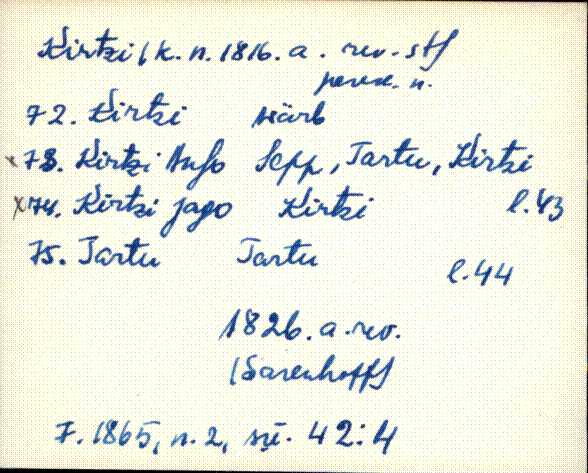 Kirtzi (k. n. 1816. a. rev. stf
peren. n.
72. Kirtzi Wärb
x 73. Kirtzi Ansо Sepp, Tartu, Kirtzi
x 74. Kirtzi jago Kirtzi l. 43
75. Tartu Tartu
l. 44
1826. a. rev.
(Sarenhoff)
F. 1865, n. 2, sü. 42:4